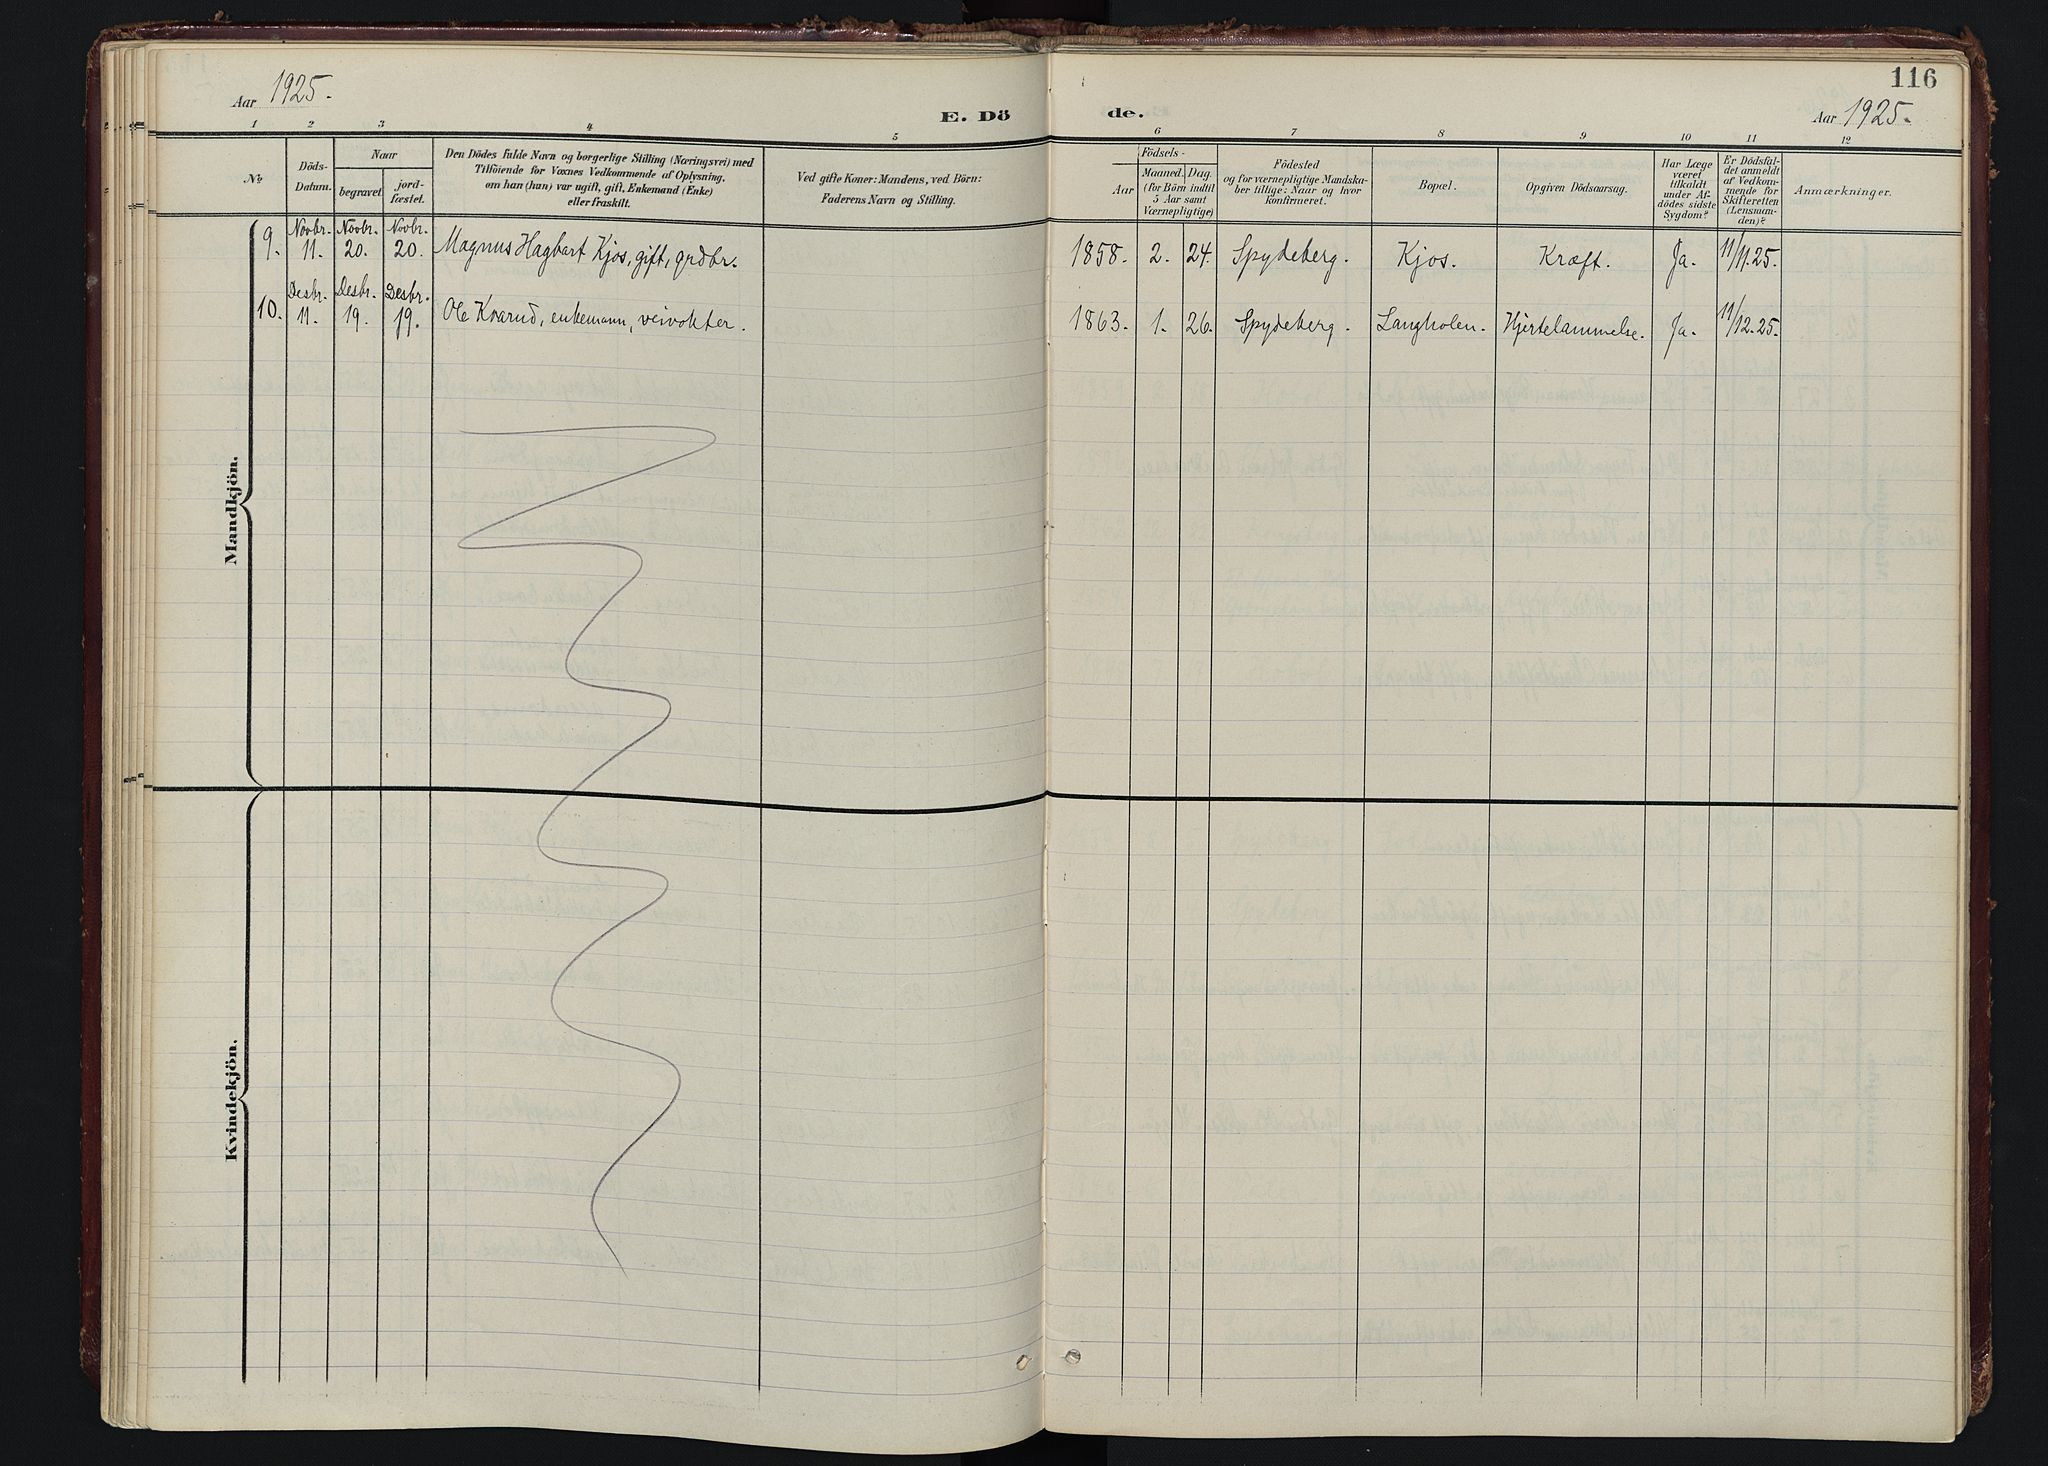 116
Aar 1925.
E. Dö
de.
Aar 1925.
1 2 3 4 5 6 7 8 9 10 11 12
No.
Döds-
Datum.
Naar
begravet.
jord-
fæstet.
Den Dödes fulde Navn og borgerlige Stilling (Næringsvei) med
Tilföiende for Voxnes Vedkommende af Oplysning,
om han (hun) var ugift, gift, Enkemand (Enke)
eller fraskilt.
Ved gifte Koner: Mandens, ved Börn:
Faderens Navn og Stilling.
Födsels-
Aar
Maaned. Dag.
(for Börn indtil
5 Aar samt
Værnepligtige)
Födested
og for værnepligtige Mandska-
ber tillige: Naar og hvor
konfirmeret.
Bopæl.
Opgiven Dödsaarsag.
Har Læge
været
tilkaldt
under Af-
dödes sidste
Sygdom?
Er Dödsfal-
det anmeldt
af Vedkom-
mende for
Skifteretten
(Lensman-
den)?
Anmærkninger.
Mandkjön.
Novbr. Novbr. Novbr.
9. 11. 20. 20. Magnus Hagbart Kjos, gift, grdbr. 1858. 2. 24. Spydeberg. Kjos. Kræft. Ja. 11/11.25.
Desbr. Desbr. Desbr.
10. 11. 19. 19. Ole Kvarud, enkemann, veivokter. 1863. 1. 26. Spydeberg. Langholen. Hjertelammelse. Ja. 11/12.25.
Kvindekjön.